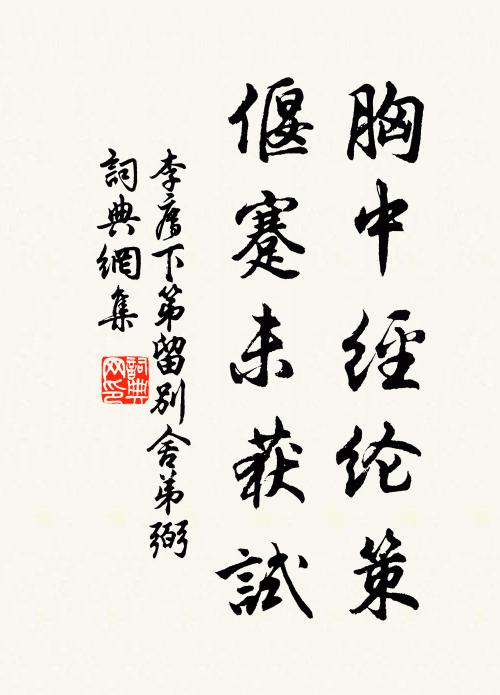 胸中經纶策
偃蹇未获試
李膺下第留別舍弟弼
詞典網集
詞典网印